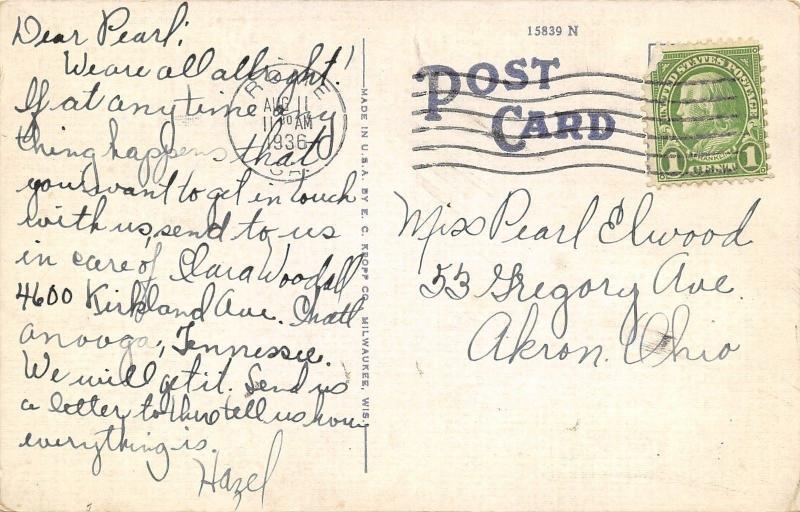 Dear Pearl;
We are all allright!
If at anytime any
thing happens that
your want to get in touch
with us, send to us
in care of Clara Woodall
4600 Kirkland Ave. Chatt
anooga, Tennessee.
We will get it. Send us
a letter to there tell us how
everything is.
Hazel
AUG 11
11 30 AM
1936
GA.
MADE IN U.S.A. BY E. C. KROPP CO. MILWAUKEE, WIS.
15839 N
POST
CARD
UNITED STATES POSTAGE
FRANKLIN
1 1
Miss Pearl Elwood
53 Gregory Ave.
Akron. Ohio